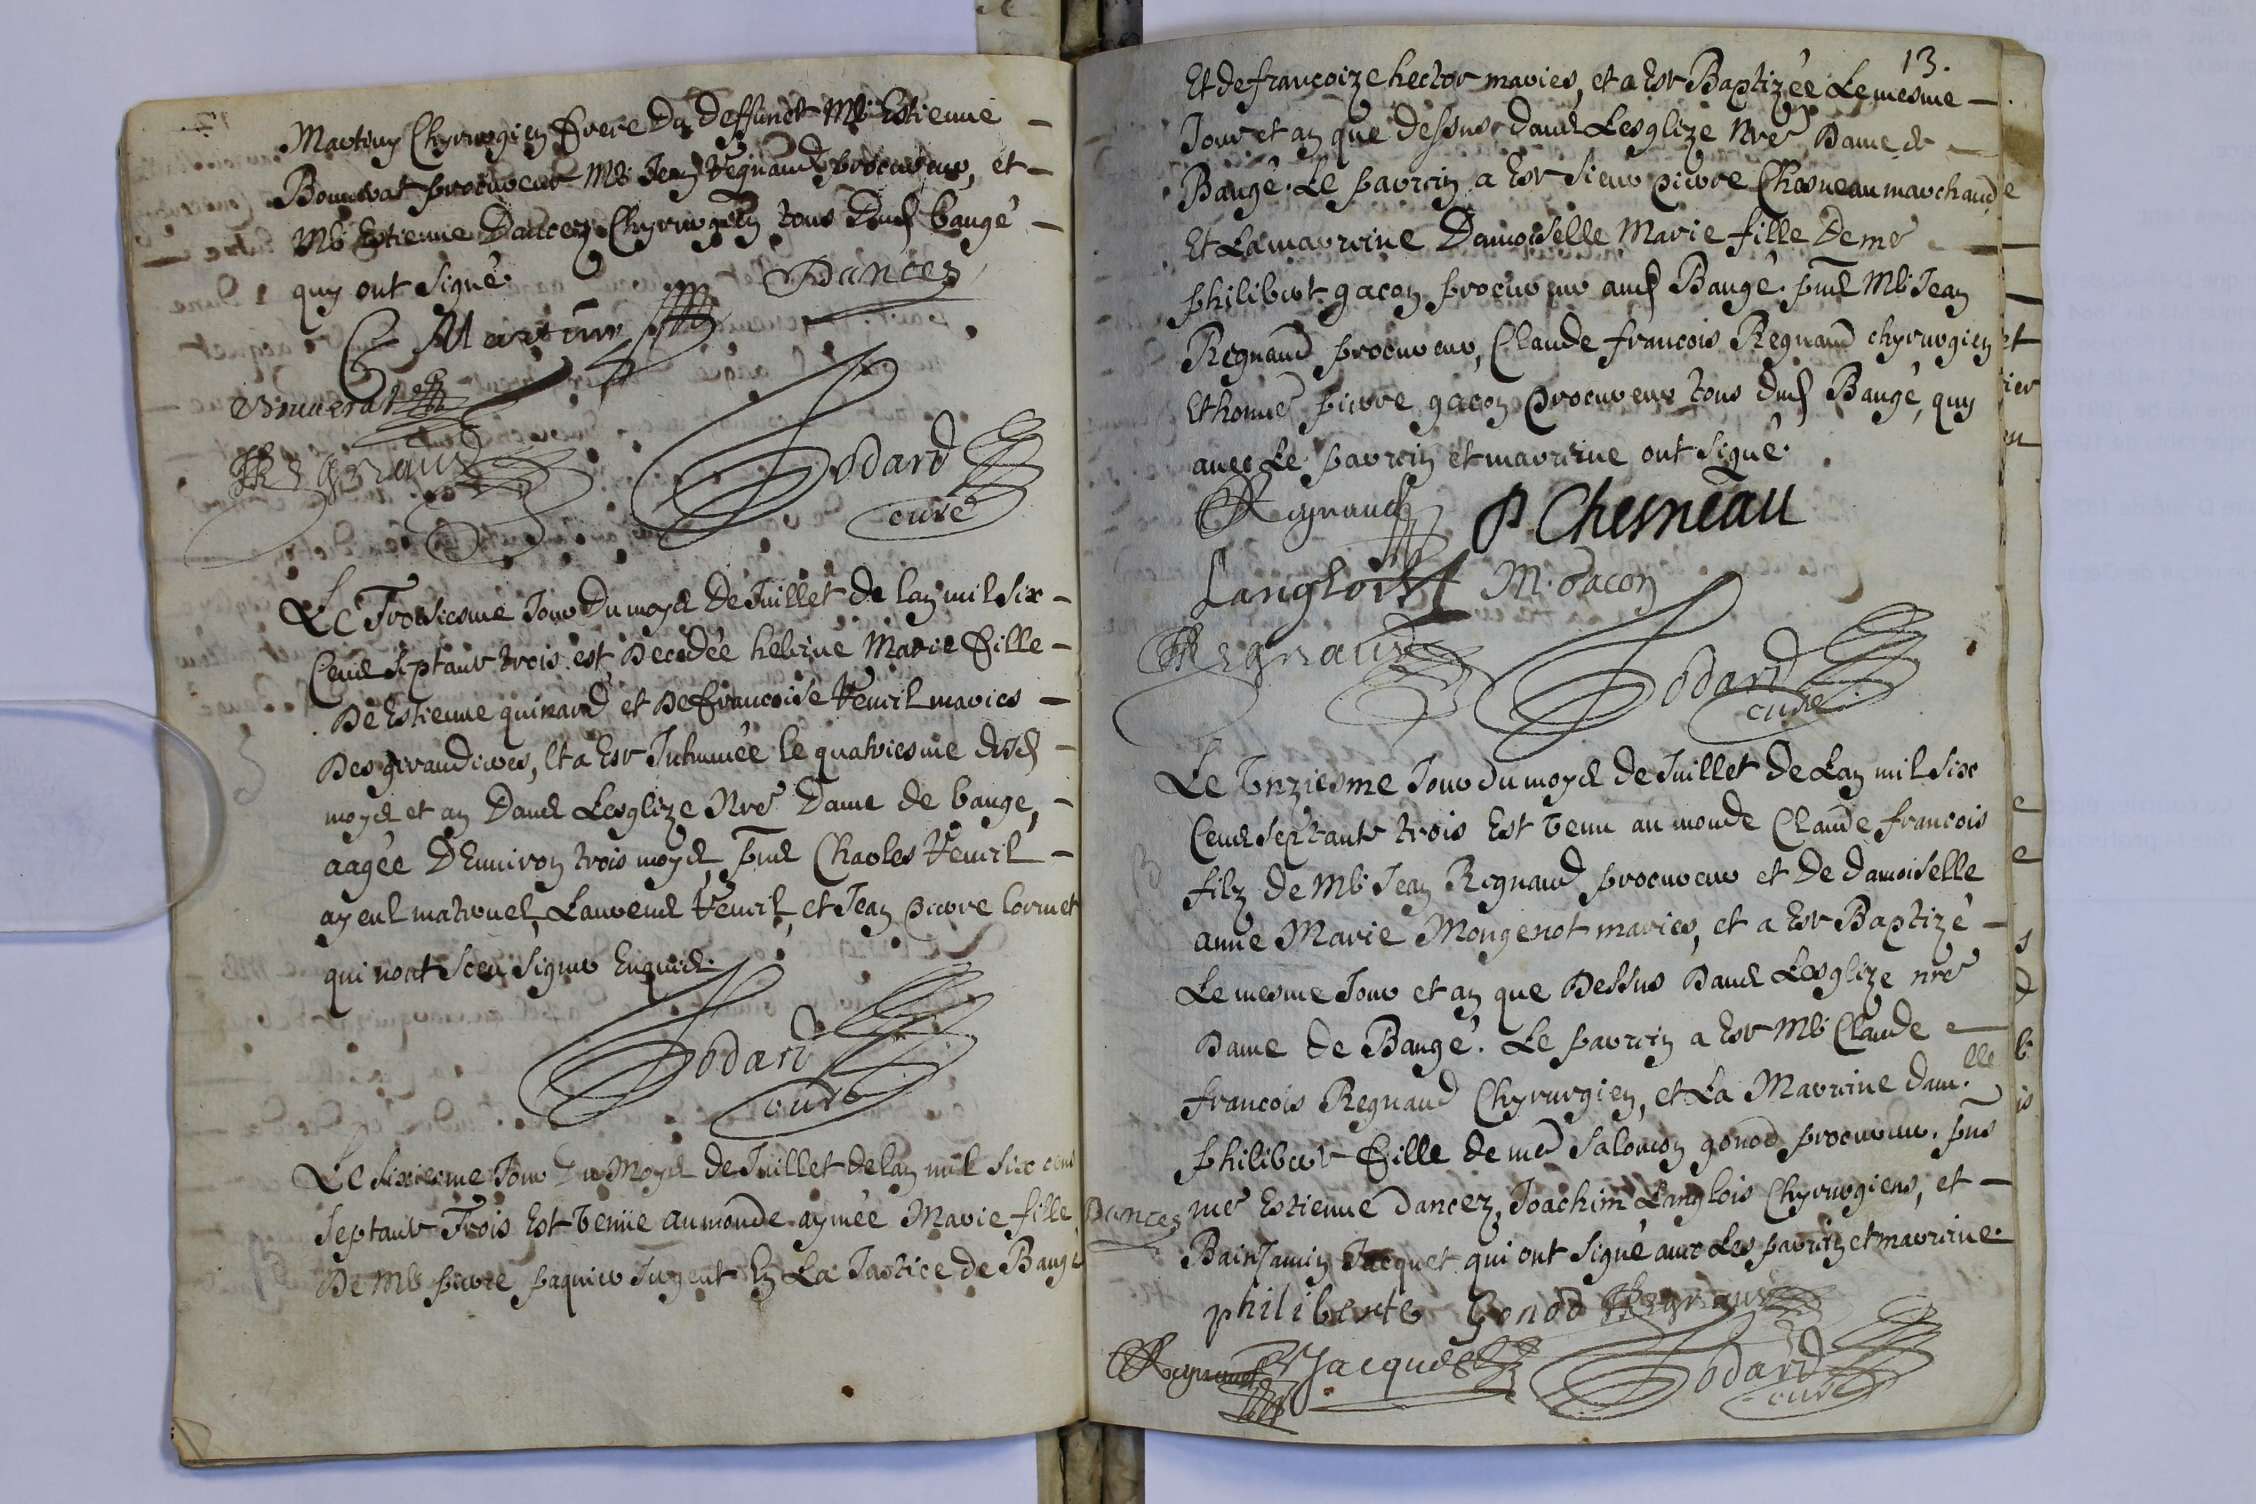 Martiny Chyrurgien frere du deffunct Mr Estienne
Bouuerat procureur Mr Jean Regnaud procureur, et
Mr Estienne Dancez Chyrurgien tous dud baugé
quy ont signé.
Martiny Dancez
Bouuerat
Regnaud Dodard
curé
Le Troisiesme Jour du moys de Juillet de lan mil six
Cens septante trois est decedée heleine Marie fille
de Estienne quinard et de francoise Veuril mariés
des giraudieres, et a esté Inhumée le quatriesme dud
moys et an dans Lesglize Nre Dame de baugé,
aagée D'Enuiron trois moys, pns Charles Veuril
ayeul maternel, Laurens Veuril, et Jean pierre Cornet
qui nont sceu signer Enquis.
Dodard
curé
Le sixiesme Jour du Moys de Juillet de lan mil six cens
septante Trois Est Venüe au monde aymée Marie fille
de Mr pierre paquier Sergent En La Justice de Baugé
13.
Et de francoize hector mariés, et a Esté Baptizée Le mesme
Jour et an que dessus dans Lesglize Nre Dame de
Baugé. Le parrein a Esté sieur pierre Chesneau marchand
Et La marreine Damoiselle Marie fille de mre
philibert gacon procureur aud Baugé. pns Mr Jean
Regnaud procureur, Claude francois Regnaud chyrurgien
Et honné pierre gacon procureur tous dud Baugé, quy
auec Le parrein et marreine ont signé.
Regnaud P Chesneau
Langlois M. Gacon
Regnaud Dodard
curé
Le Vnziesme Jour du moys de Juillet de Lan mil six
Cens septante trois Est Venu au monde Claude francois
filz de Mr Jean Regnaud procureur et de damoiselle
anne Marie Mongenot mariés, et a Esté Baptizé
Le mesme Jour et an que dessus dans Lesglize nre
dame de Baugé. Le parrein a Esté Mr Claude
francois Regnaud Chyrurgien, et La Marreine dam.lle
philiberte fille de me Salomon gonod procureur. pns
me Estienne dancez, Joachim Langlois Chyrurgiens, et
Dancez
Bainjamin Jacquet qui ont signé auec Les parrein et marreine.
philiberte Gonod Regnaud
Regnaud Jacquet Dodard
curé